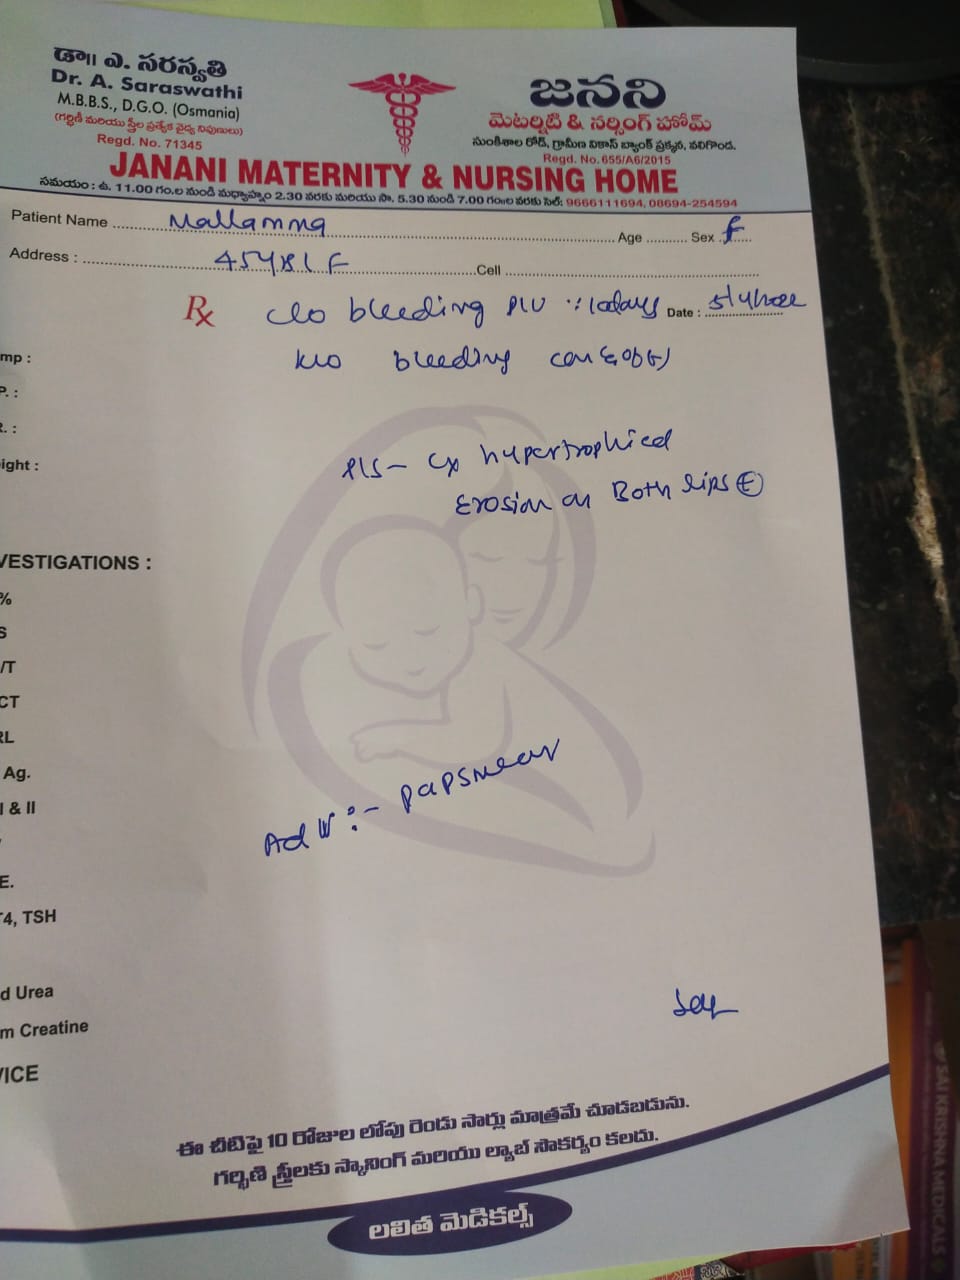 డా॥ ఎ. సరస్వతి
Dr. A. Saraswathi
M.B.B.S., D.G.O. (Osmania)
(గర్భిణీ మరియు స్త్రీల ప్రత్యేక వైద్య నిపుణులు)
Regd. No. 71345
జనని
మెటర్నిటి & నర్సింగ్ హోమ్
సుంకిశాల రోడ్, గ్రామీణ వికాస్ బ్యాంక్ ప్రక్కన, వలిగొండ.
Regd. No. 655/A6/2015
JANANI MATERNITY & NURSING HOME
సమయం : ఉ. 11.00 గం.ల నుండి మధ్యాహ్నం 2.30 వరకు మరియు సా. 5.30 నుండి 7.00 గం॥ల వరకు సెల్: 9666111694, 08694-254594
Patient Name Mallamma Age Sex F
Address : 45y F Cell
Rx c/o bleeding P/V 10days Date :
bleeding
mp :
P. :
R. :
ight :
P/S - Cx hypertrophied
Erosion on Both lips
VESTIGATIONS :
%
S
/T
CT
RL
Ag.
I & II
E.
T4, TSH
d Urea
m Creatine
VICE
Adv :- papsmear
ఈ చీటిపై 10 రోజుల లోపు రెండు సార్లు మాత్రమే చూడబడును.
గర్భిణి స్త్రీలకు స్కానింగ్ మరియు ల్యాబ్ సౌకర్యం కలదు.
లలిత మెడికల్స్
SAI KRISHNA MEDICALS